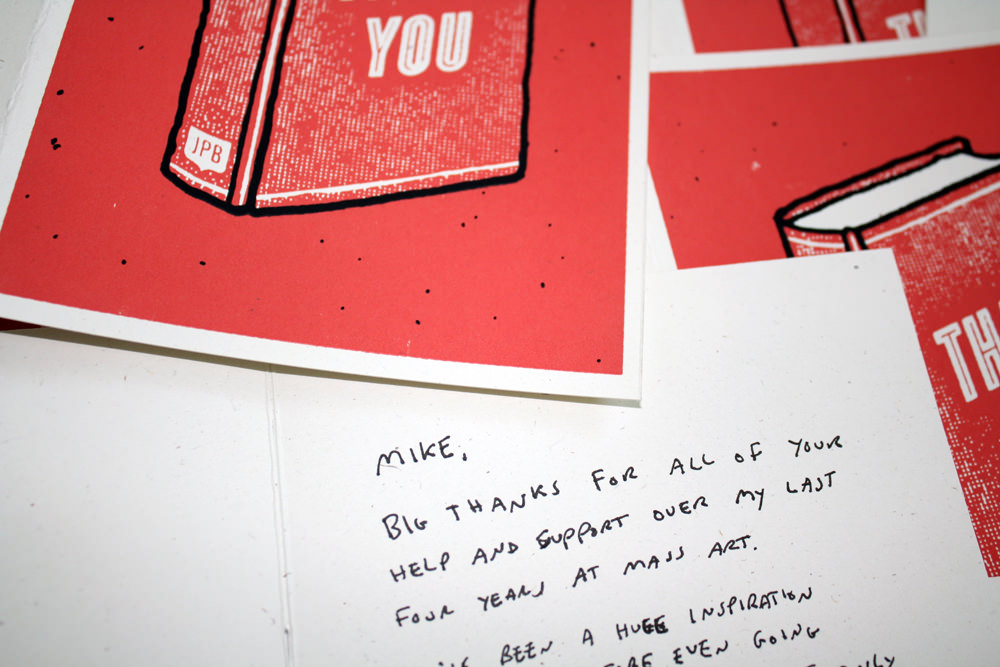 YOU
JPB
MIKE,
BIG THANKS FOR ALL OF YOUR
HELP AND SUPPORT OVER MY LAST
FOUR YEARS AT MASS ART.
BEEN A HUGE INSPIRATION
EVEN GOING